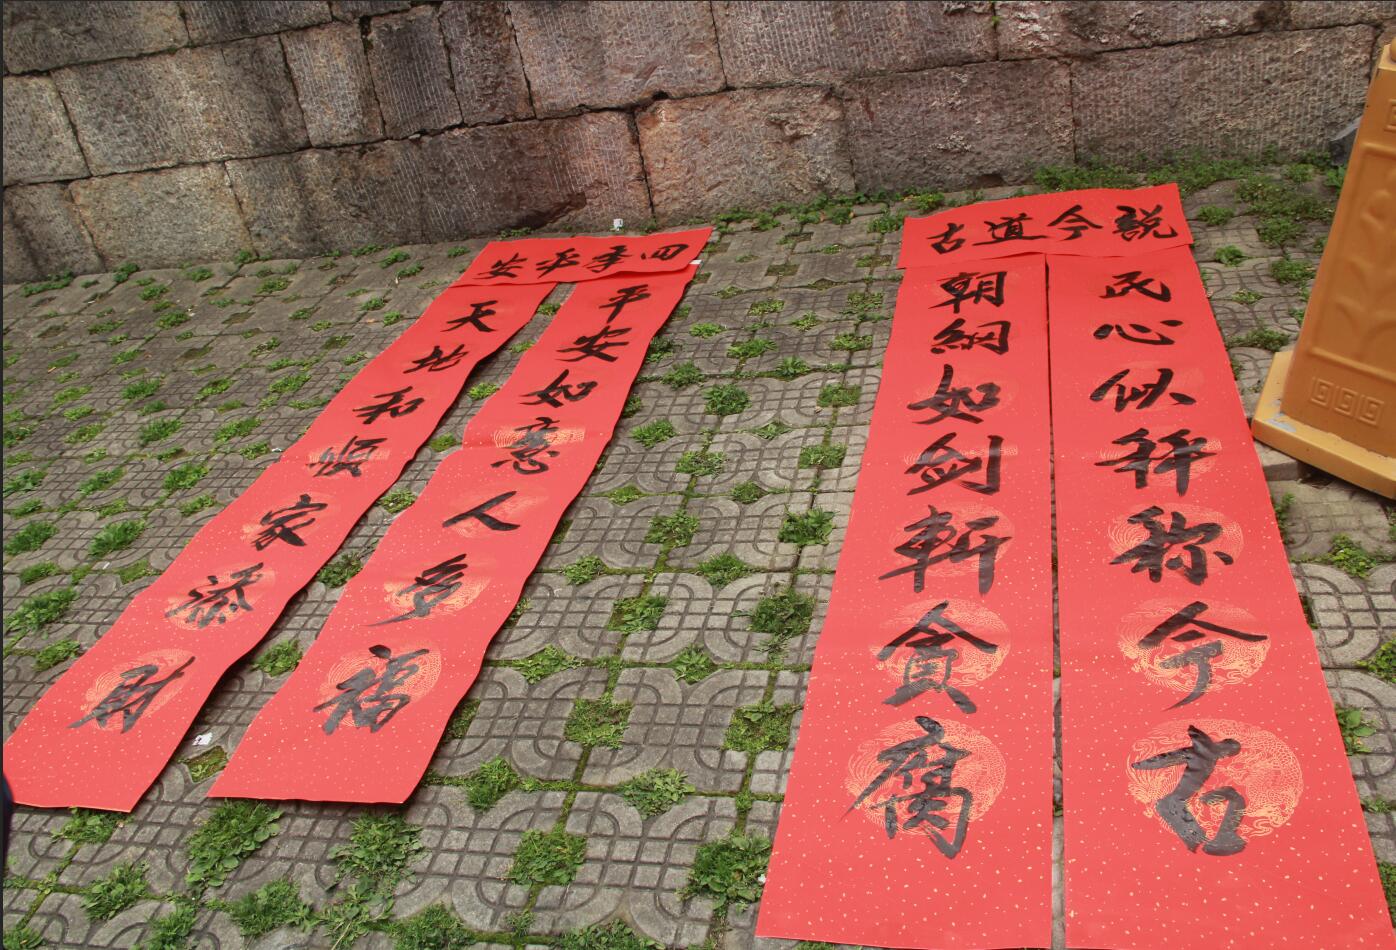 說今道古
民心似秤称今古
朝綱如劍斬貪腐
四季平安
平安如意人多福
天地和順家添財